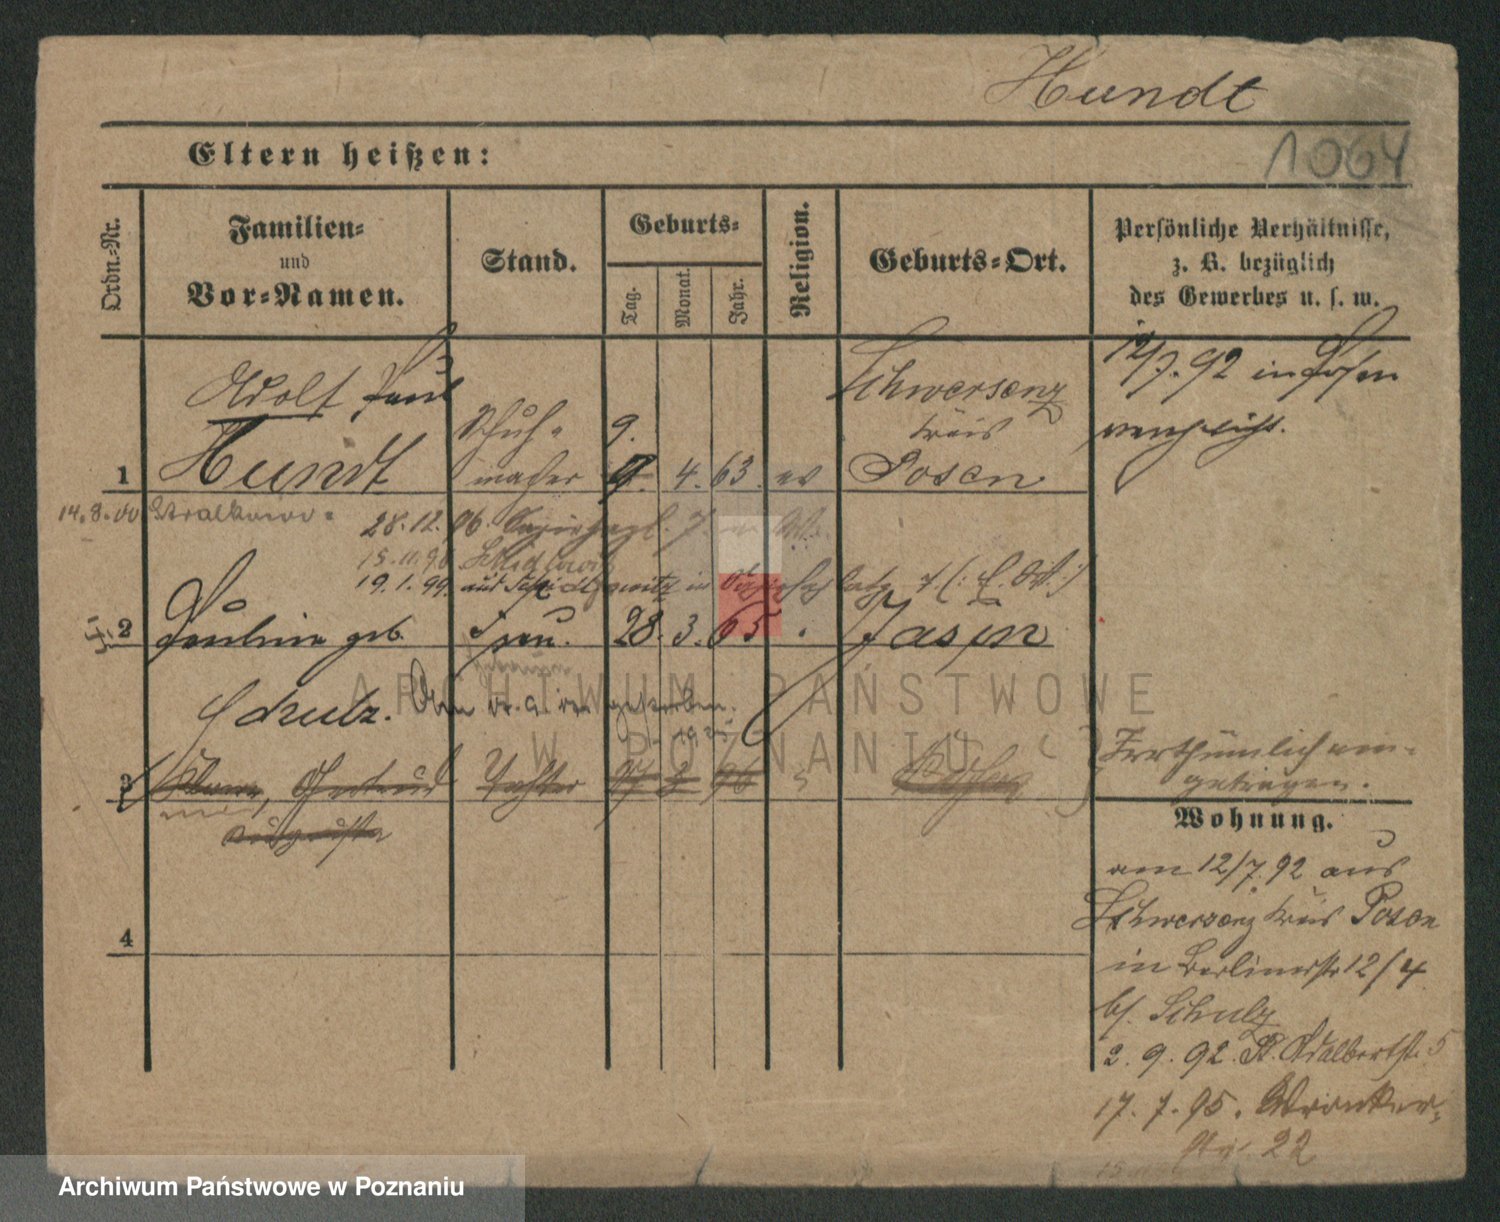 Hundt
1064
Eltern heißen:
Ordn.-Nr.
Familien-
und
Vor-Namen.
Stand.
Geburts-
Tag.
Monat.
Jahr.
Religion.
Geburts-Ort.
Persönliche Verhältnisse,
z. B. bezüglich
des Gewerbes u. s. w.
1
Adolf Paul
Hundt
Schuh-
macher
9.
4. 63. ev
Schwersenz
Kreis
Posen
12/7. 92 in Posen
verehelicht.
14.8.00 Stralkowo
28.12.
15.11.98
19.1.99. aus in
2
Pauline geb.
Schulz.
Frau.
28. 3. 65
Jasin
gestorben.
3
Gertrud
Augusta
Tochter
96
Posen
Irrthümlich ein-
getragen.
4
Wohnung.
am 12/7. 92 aus
Schwersenz Kreis Posen
in Berlinerstr 12/4
bf. Schulz
2. 9. 92. St. Adalbertstr. 5
17. 7. 95. Wronker-
str. 22
ARCHIWUM PAŃSTWOWE
W POZNANIU
Archiwum Państwowe w Poznaniu